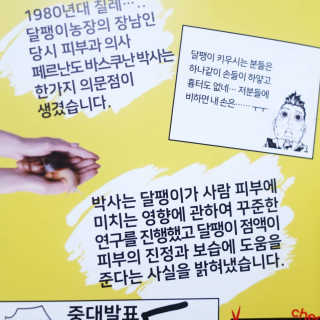 1980년대 칠레…..
달팽이농장의 장남인
당시 피부과 의사
페르난도 바스쿠난 박사는
한가지 의문점이
생겼습니다.
달팽이 키우시는 분들은
하나같이 손들이 하얗고
흉터도 없네… 저분들에
비하면 내 손은…… ㅜㅜ
박사는 달팽이가 사람 피부에
미치는 영향에 관하여 꾸준한
연구를 진행했고 달팽이 점액이
피부의 진정과 보습에 도움을
준다는 사실을 밝혀냈습니다.
중대발표